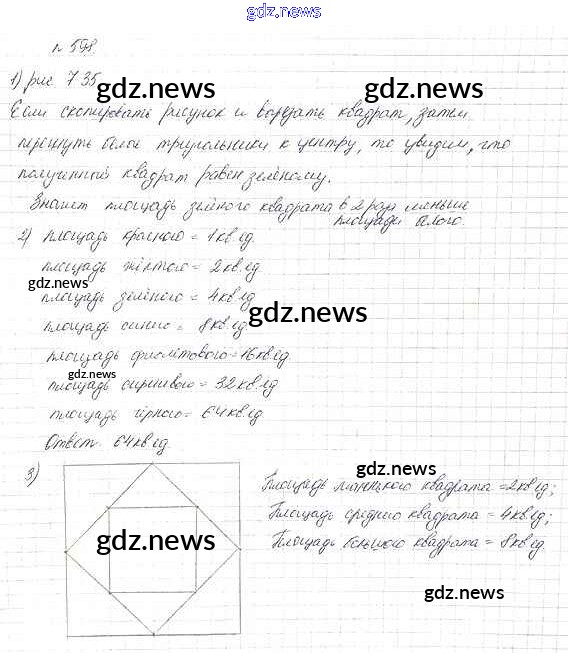 gdz.news
gdz.news
№ 598.
1) рис 7 35
gdz.news
Если скопировать рисунок и вырезать квадрат, затем
перегнуть белые треугольники к центру, то увидим, что
полученный квадрат равен зелёному.
Значит площадь зелёного квадрата в 2 раза меньше
площади белого.
2) площадь красного = 1кв.ед.
площадь жёлтого = 2кв.ед
gdz.news
площадь зелёного = 4кв.ед
gdz.news
площадь синего = 8кв.ед.
площадь фиолетового = 16кв.ед
gdz.news
площадь сиреневого = 32кв.ед
площадь чёрного = 64кв.ед
Ответ: 64кв.ед.
3)
gdz.news
Площадь маленького квадрата = 2кв.ед;
Площадь среднего квадрата = 4кв.ед;
Площадь большого квадрата = 8кв.ед.
gdz.news
gdz.news